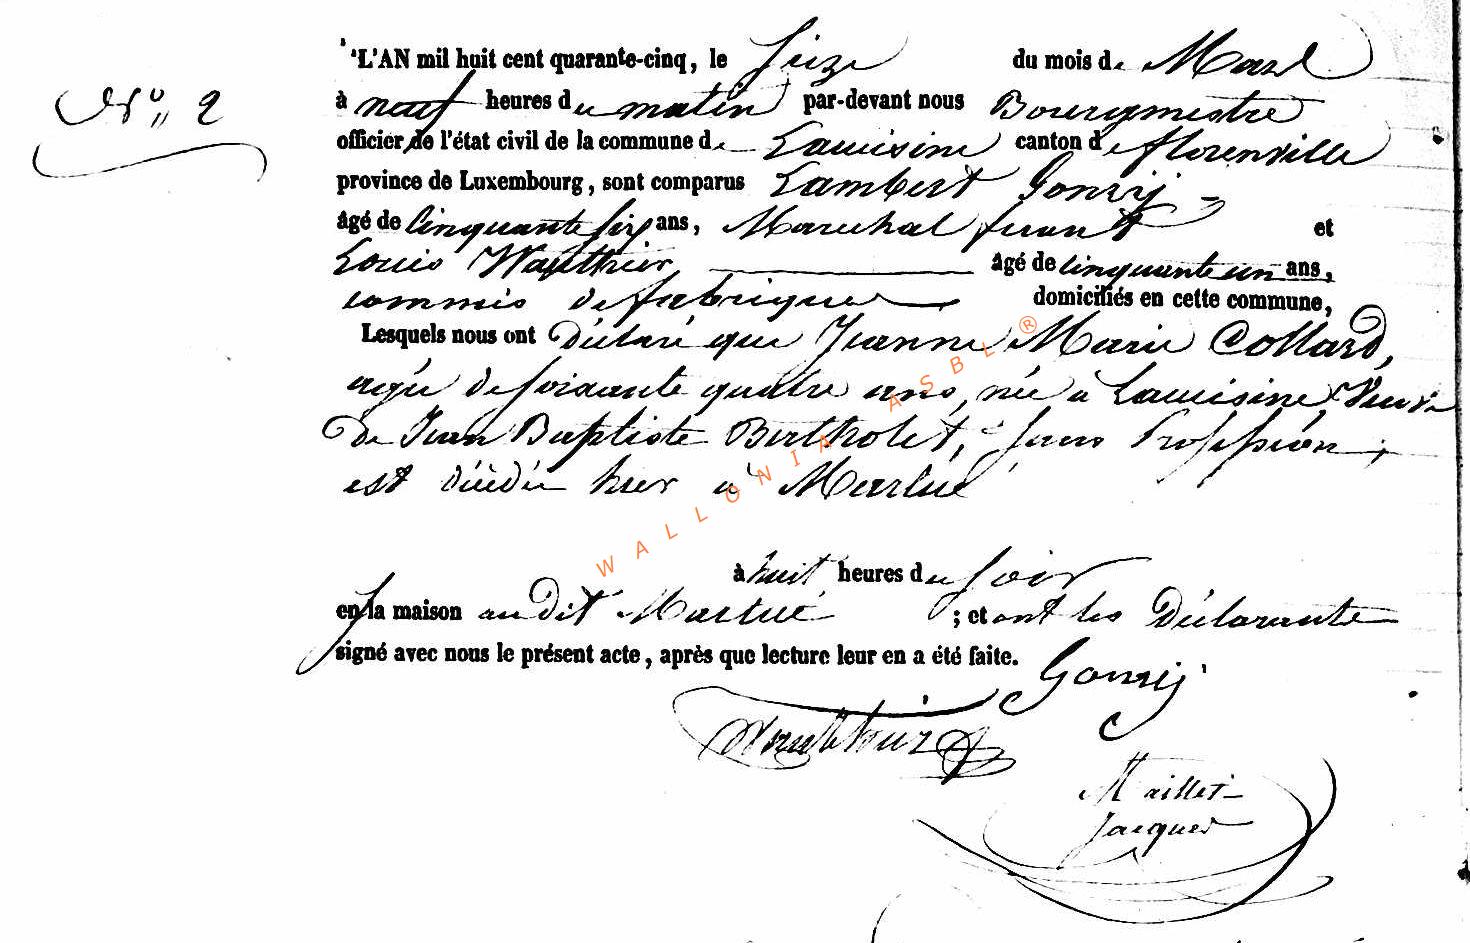 N° 2
L'AN mil huit cent quarante-cinq, le seize du mois de Mars
à neuf heures du matin par-devant nous Bourgmestre
officier de l'état civil de la commune de Lacuisine canton de florenville
province de Luxembourg, sont comparus Lambert Gonry
âgé de cinquante six ans, Marechal ferant et
Louis Wauthier âgé de cinquante un ans,
commis de fabrique domiciliés en cette commune,
Lesquels nous ont Déclaré que Jeanne Marie Collard,
agée de soixante quatre ans, née à Lacuisine, Veuve
de Jean Baptiste Bertholet, sans Profession,
est décédée hier à Martué
à huit heures du soir
en sa maison audit Martué ; et ont les Déclarants
signé avec nous le présent acte, après que lecture leur en a été faite.
Gonry
Wauthier
Maillet
Jacques
WALLONIA ASBL ®